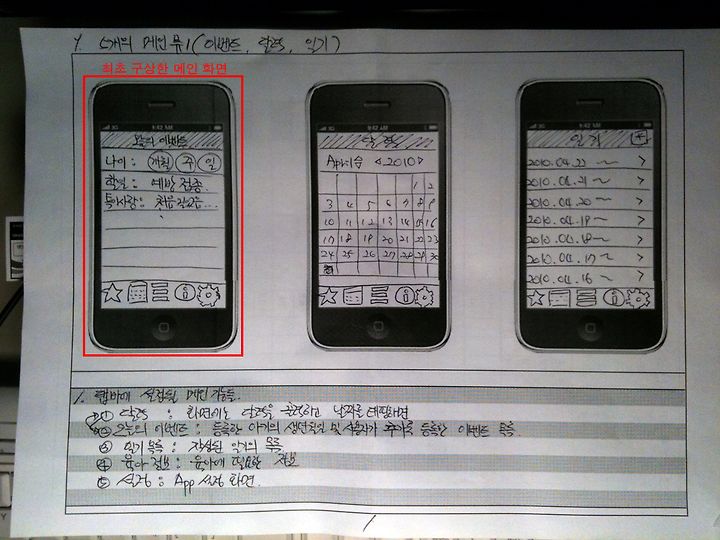 1. 5개의 메인 뷰1 (이벤트, 달력, 일기)
최초 구상한 메인 화면
3G 9:42 AM
오늘의 이벤트
나이 : 개월 주 일
할일 : 예방 접종
특이사항 :
3G 9:42 AM
달력
◁2010▷
1 2
3 4 5 6 7 8 9
10 11 12 13 14 15 16
17 18 19 20 21 22 23
24 25 26 27 28 29 30
3G 9:42 AM
일기 +
2010.04.22 ~ >
2010.04.21 ~ >
2010.04.20 ~ >
2010.04.19 ~ >
2010.04.18 ~ >
2010.04.17 ~ >
2010.04.16 ~ >
탭바에 설정될 메인 기능들.
① 달력 : 화면에는 달력을 출력하고 날짜를 태핑하면
② 오늘의 이벤트 : 등록한 아기의 생년월일 및 사용자가 추가로 등록한 이벤트 목록.
③ 일기 목록 : 작성된 일기의 목록
④ 육아 정보 : 육아에 필요한 정보
⑤ 설정 : App 설정 화면.
1